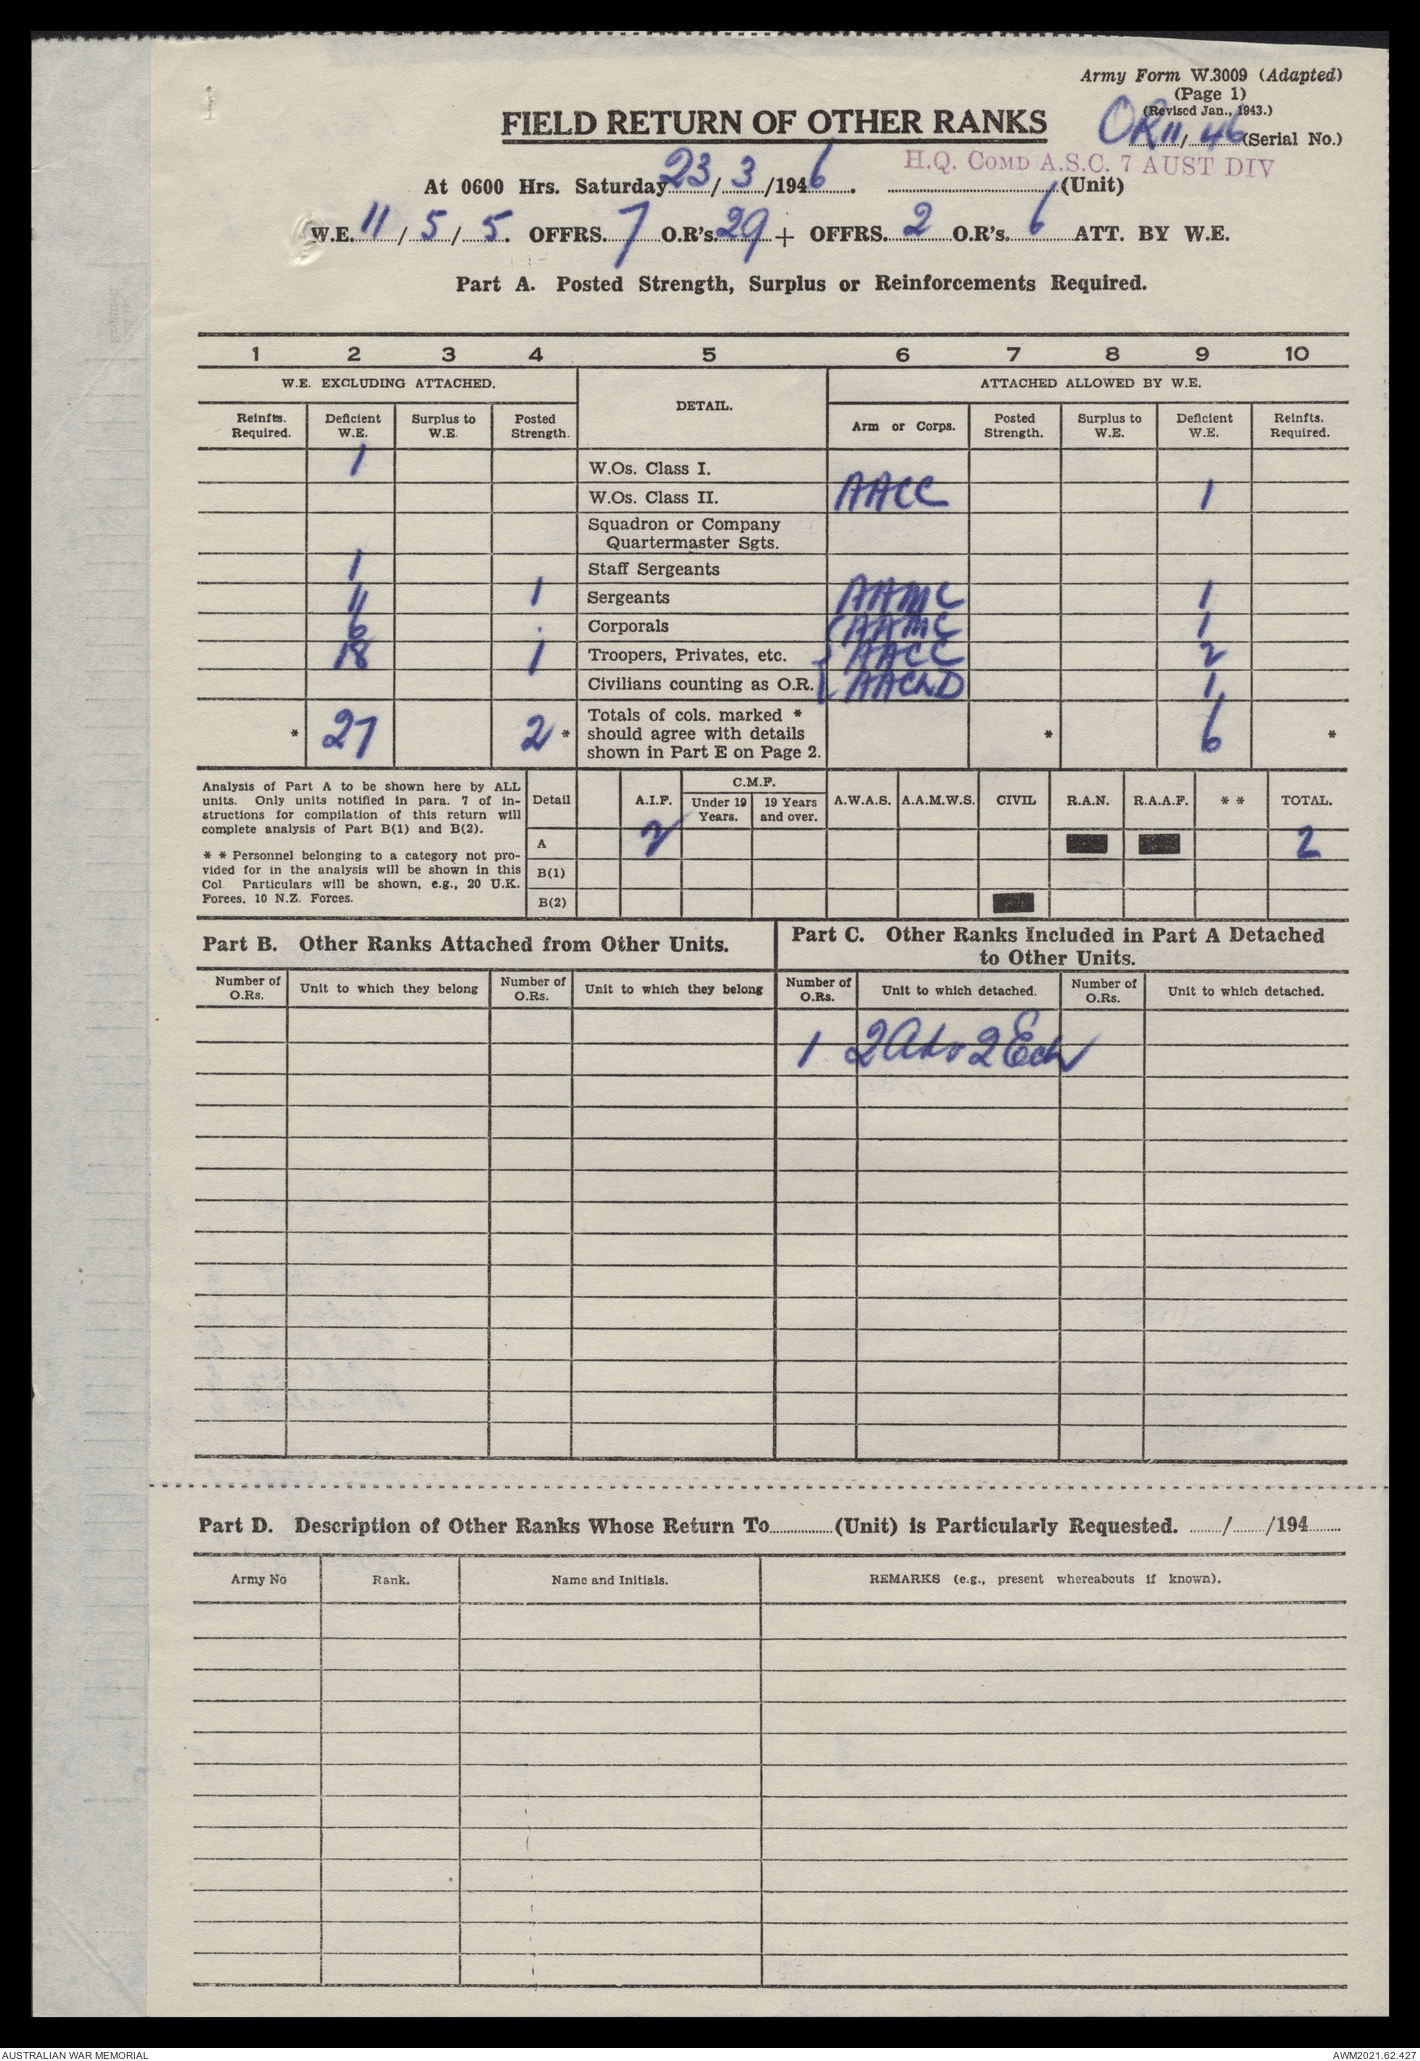 Army Form W.3009 (Adapted)
(Page 1)
(Revised Jan., 1943.)
FIELD RETURN OF OTHER RANKS
OR 11/46 (Serial No.)
H.Q. COMD A.S.C. 7 AUST DIV
At 0600 Hrs. Saturday 23/3/1946. (Unit)
W.E. 11/5/5. OFFRS. 7 O.R's. 29 + OFFRS. 2 O.R's. 6 ATT. BY W.E.
Part A. Posted Strength, Surplus or Reinforcements Required.
1 2 3 4 5 6 7 8 9 10
W.E. EXCLUDING ATTACHED. DETAIL. ATTACHED ALLOWED BY W.E.
Reinfts. Required. Deficient W.E. Surplus to W.E. Posted Strength. Arm or Corps. Posted Strength. Surplus to W.E. Deficient W.E. Reinfts. Required.
1 W.Os. Class I.
W.Os. Class II. AACC 1
Squadron or Company
Quartermaster Sgts.
1 Staff Sergeants
1 Sergeants AAMC 1
6 Corporals AAMC 1
18 1 Troopers, Privates, etc. AACC 2
Civilians counting as O.R. 1
* 27 2 * Totals of cols. marked * should agree with details shown in Part E on Page 2. * 6 *
Analysis of Part A to be shown here by ALL
units. Only units notified in para. 7 of in-
structions for compilation of this return will
complete analysis of Part B(1) and B(2).
* * Personnel belonging to a category not pro-
vided for in the analysis will be shown in this
Col. Particulars will be shown, e.g., 20 U.K.
Forces, 10 N.Z. Forces.
Detail A.I.F. C.M.F. Under 19 Years. 19 Years and over. A.W.A.S. A.A.M.W.S. CIVIL R.A.N. R.A.A.F. * * TOTAL.
A 2 2
B(1)
B(2)
Part B. Other Ranks Attached from Other Units.
Part C. Other Ranks Included in Part A Detached
to Other Units.
Number of O.Rs. Unit to which they belong Number of O.Rs. Unit to which they belong Number of O.Rs. Unit to which detached. Number of O.Rs. Unit to which detached.
1 2 Adv 2 Ech
Part D. Description of Other Ranks Whose Return To (Unit) is Particularly Requested. / /194
Army No Rank. Name and Initials. REMARKS (e.g., present whereabouts if known).
AUSTRALIAN WAR MEMORIAL
AWM2021.62.427